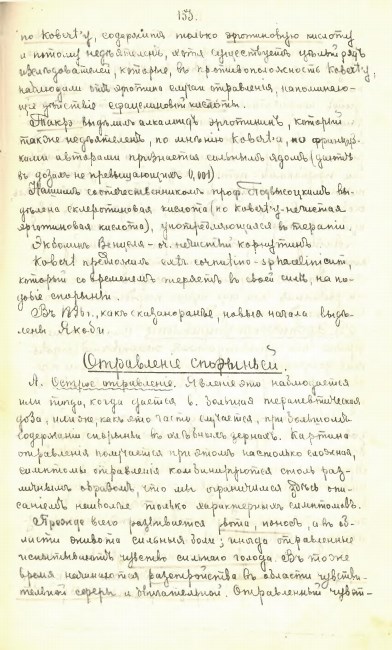 133.
по Kobert'у, содержитъ только эрготиновую кислоту
и потому недѣятеленъ, хотя существуетъ цѣлый рядъ
изслѣдователей, которые, въ противоположность Kobert'у,
наблюдали отъ эрготина случаи отравленія, напоминаю-
щіе дѣйствіе сфацелиновой кислоты.
Танрэ выдѣлилъ алкалоидъ эрготининъ, который
также недѣятеленъ, по мнѣнію Kobert'а, но француз-
скими авторами признается сильнымъ ядомъ (даютъ
въ дозахъ не превышающихъ 0,001).
Нашимъ соотечественникомъ проф. Подвысоцкимъ вы-
дѣлена склеротиновая кислота (по Kobert'у - нечистая
эрготиновая кислота), употребляющаяся въ терапіи.
Экболинъ Венцеля - оч. нечистый корнутинъ
Kobert предложилъ extr. cornutino-sphacelinicum,
который со временемъ теряетъ въ своей силѣ, на по-
добіе спорыньи.
Въ 1896г., какъ сказано ранѣе, новыя начала выдѣ-
лены Якоби.
Отравленіе спорыньей.
А. Острое отравленіе. Явленіе это наблюдается
или тогда, когда дается в. большая терапевтическая
доза, или же, какъ это часто случается, при большомъ
содержаніи спорыньи въ хлѣбныхъ зернахъ. Картина
отравленія получается при этомъ настолько сложная,
симптомы отравленія комбинируются столь раз-
личнымъ образомъ, что мы ограничимся здѣсь опи-
саніемъ наиболѣе только характерныхъ симптомовъ.
Прежде всего развивается рвота, поносъ, а въ об-
ласти живота сильныя боли; иногда отравленные
испытываютъ чувство сильнаго голода. Въ тоже
время начинаются разстройства въ области чувстви-
тельной сферы и двигательной. Отравленный чувст-